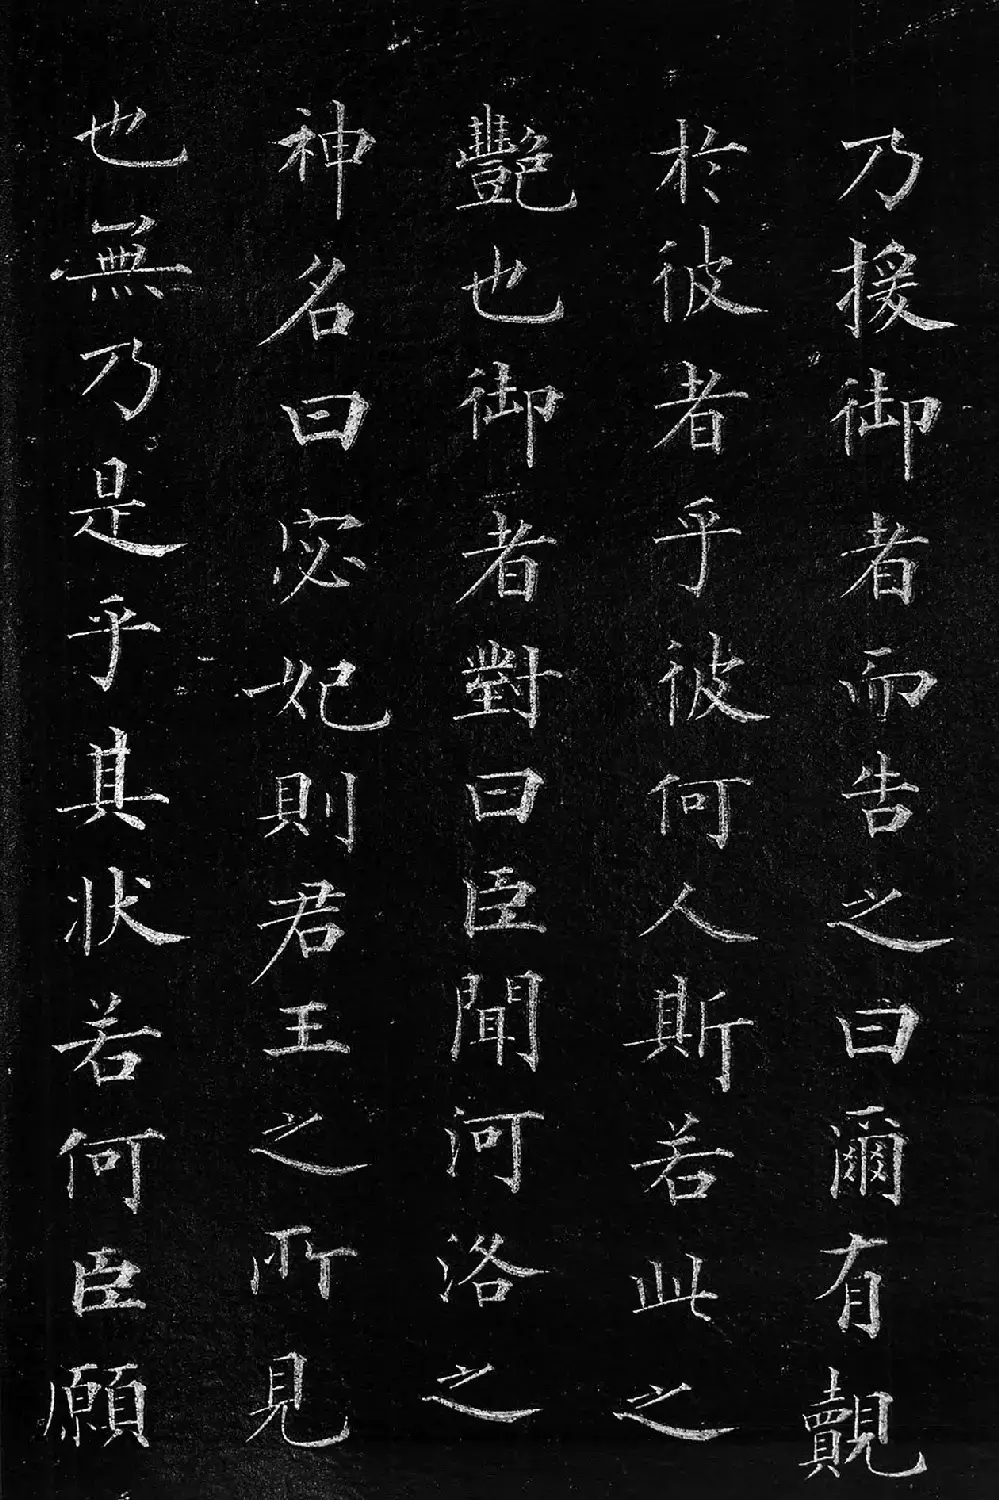 乃援御者而告之曰爾有覿
於彼者乎彼何人斯若此之
豔也御者對曰臣聞河洛之
神名曰宓妃則君王之所見
也無乃是乎其狀若何臣願